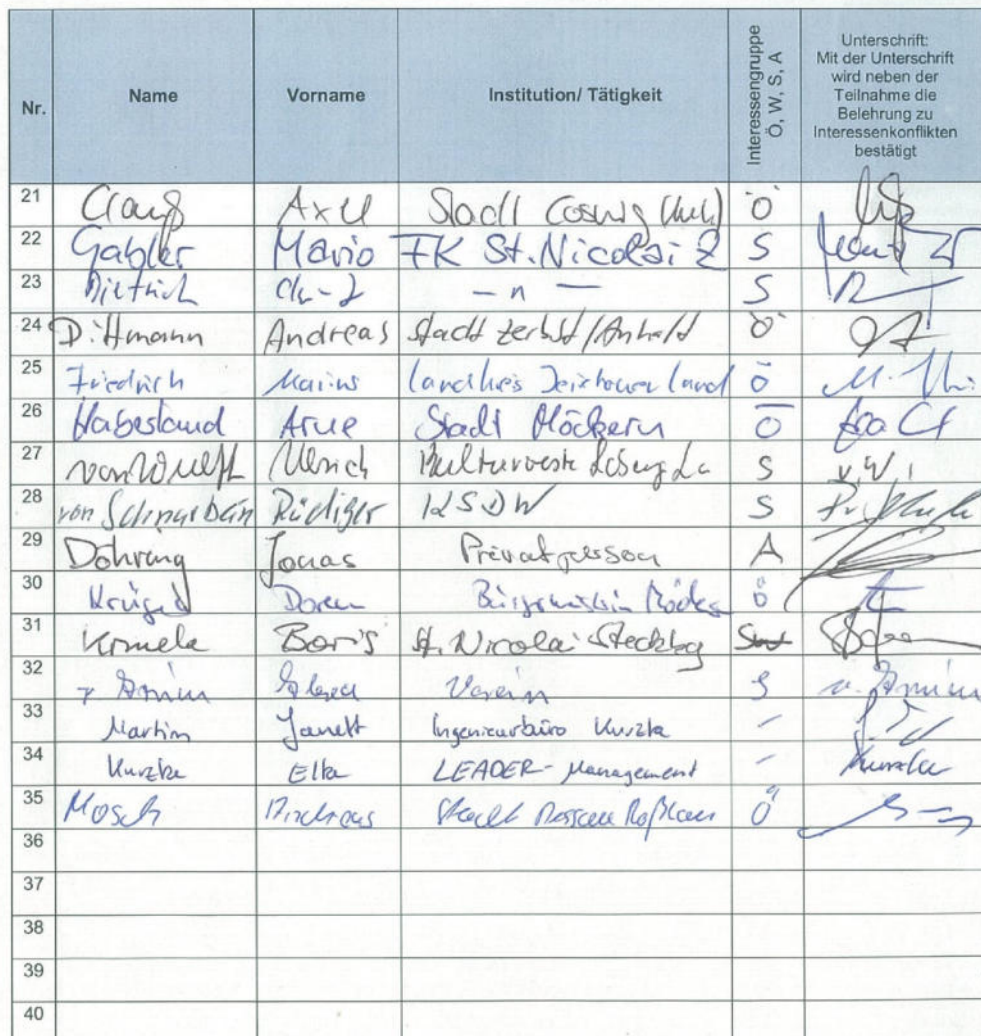 Nr. Name Vorname Institution/ Tätigkeit Interessengruppe Ö, W, S, A Unterschrift: Mit der Unterschrift wird neben der Teilnahme die Belehrung zu Interessenkonflikten bestätigt
21 Clauß Axel Stadt Coswig (Anh) Ö
22 Gabler Mario FK St. Nicolai Z S
23 Dietrich - " - S
24 Dittmann Andreas Stadt Zerbst/Anhalt Ö
25 Friedrich Marius Landkreis Jerichower Land Ö
26 Stadt Möckern Ö
27 von Wulffen Ulrich S v.W.
28 Rüdiger KSDW S
29 Döhring Jonas Privatperson A
30 Krüger Doreen Ö
31 Boris St. Nicolai Steckby
32 Verein S v. Arnim
33 Martin Janett Ingenieurbüro Kurzke -
34 Kurzke Elke LEADER-Management - Kurzke
35 Mosch Andreas Stadt Dessau Roßlau Ö
36
37
38
39
40